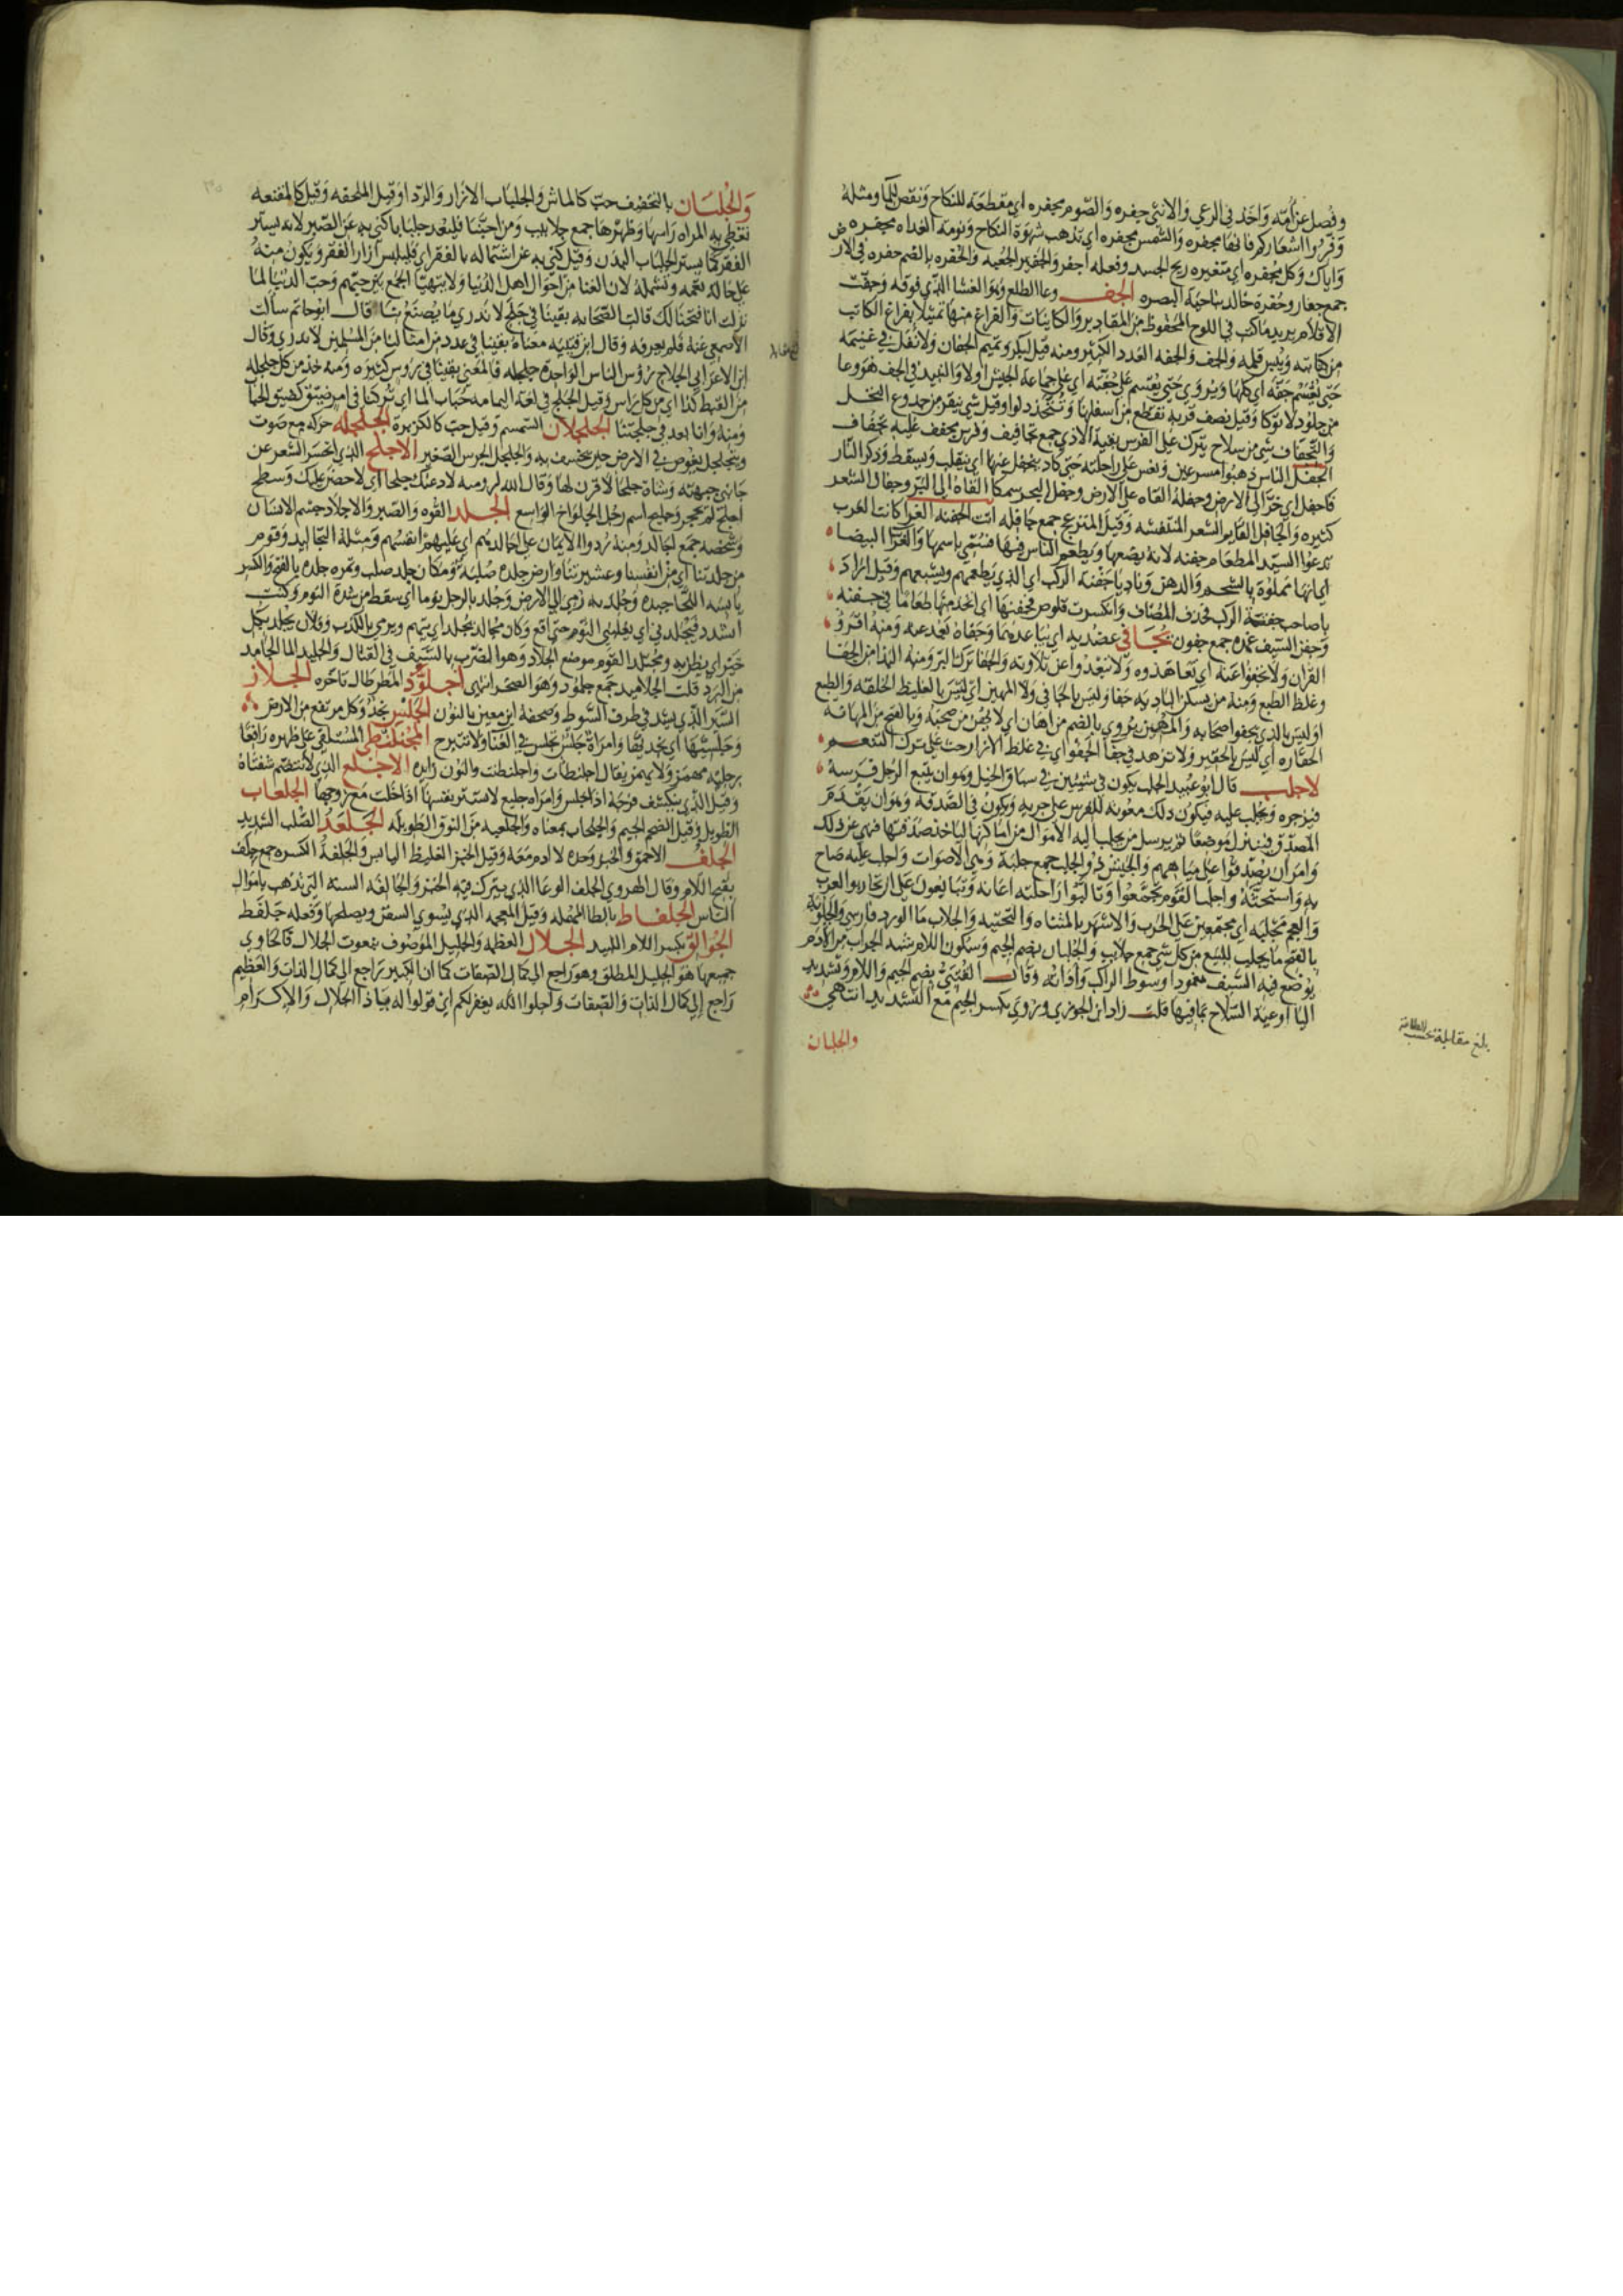 وفصل عن أمه واخذ في الرعي والانثى جفره والصوم مجفره اي مقطعة للنكاح ونقص للماء ومثله
ووفروا اشعاركم فانها مجفره والشمس مجفره اي تذهب شهوة النكاح ونومة الغداه مجفره
واياك وكل مجفره اي متغيره ريح الجسد وفعله اجفر والجفير الجعبه والجفره بالضم حفره في الارض
جمع جفار وجفرة خالد بناحية البصره الجف وعا الطلع وهو الغشا الذي فوقه وجفت
الاقلام يريد ما كتب في اللوح المحفوظ من المقادير والكاينات والفراغ منها تمثيلا بفراغ الكاتب
من كتابته ويبس قلمه والجف والجفه العدد الكثير ومنه قيل لبكر وتميم الجفان ولا نفل في غنيمة
حتى تقسم جفة اي كلها ويروى حتى يقسم على جفته اي على جماعة الجيش اولا والنبيذ في الجف هو وعا
من جلود لا توكا وقيل نصف قربه تقطع من اسفلها وتتخذ دلوا وقيل شي ينقر من جدوع النخل
والتجفاف شي من سلاح يترك على الفرس يقيه الاذى جمع تجافيف وفرس مجفف عليه تجفاف
الجفل الناس ذهبوا مسرعين ونعس على راحلته حتى كاد ينجفل عنها اي ينقلب ويسقط وذكر النار
فاجفل اي خر الى الارض وجفله القاه على الارض وجفل البحر سمكا القاه الى البر وجفال الشعر
كثيره والجافل القايم الشعر المنتفشه وقيل المنزعج جمع جافله انت الجفنة الغرا كانت العرب
تدعوا السيد المطعام جفنه لانه يضعها ويطعم الناس فيها فسمي باسمها والغرا البيضا
اي انها مملوة بالشحم والدهن وناد ياجفنة الركب اي الذي يطعمهم ويشبعهم وقيل اراد
يا صاحب جفنة الركب فحذف المضاف وانكسرت قلوص فجفنها اي اتخذ منها طعاما في جفنه
وجفن السيف غمده جمع جفون يجافي عضديه اي يباعدهما وجفاه بعد عنه ومنه اقروا
القران ولا تجفوا عنه اي تعاهدوه ولا تبعدوا عن تلاوته والجفا ترك البر ومنه البذا من الجفا
وغلظ الطبع ومنه من يسكن الباديه جفا وليس بالجافي ولا المهين اي ليس بالغليظ الخلقه والطبع
او ليس بالذي يجفوا اصحابه والمهين يروى بالضم من اهان اي لا يهين من صحبه وبالفتح من المهانه
الحقاره اي ليس بالحقير ولا تزهد في جفا الحقو اي في غلظ الازار حث على ترك التنعم
لاجلب قال ابو عبيد الجلب يكون في شيئين في سباق الخيل وهو ان يتبع الرجل فرسه
فيزجره ويجلب عليه فيكون ذلك معونه للفرس على جريه ويكون في الصدقه وهو ان يقدم
المصدق فينزل موضعا ثم يرسل من يجلب اليه الاموال من اماكنها لياخذ صدقتها فنهي عن ذلك
وامر ان يصدقوا على مياههم والجيش ذو الجلب جمع جلبة وهي الاصوات واجلب عليه صاح
به واستحثه واجلب القوم تجمعوا وتالبوا واجلبه اعانه وتبايعون على ان تحاربوا العرب
والعجم مجلبه اي مجتمعين على الحرب والاشهر بالمثناه والتحتيه والجلاب ما الورد فارسي والجلوبة
بالفتح ما يجلب للبيع من كل شي جمع جلايب والجلبان بضم الجيم وسكون اللام شبه الجراب من الادم
يوضع فيه السيف مغمودا وسوط الراكب واداته وقال القتيبي بضم الجيم واللام وتشديد
البا اوعية السلاح بما فيها قلت زاد ابن الجوزي وروي بكسر الجيم مع التشديد انتهى
والجلبان
بلغ مقابلة بحسب الطاقة
والجلبان بالتخفيف حب كالماش والجلباب الازار والردا وقيل الملحفه وقيل كالمقنعه
تغطي به المراه راسها وظهرها جمع جلابيب ومن احبنا فليعد جلبابا كني به عن الصبر لانه يستر
الفقر كما يستر الجلباب البدن وقيل كني به عن اشتماله بالفقر اي فليلبس ازار الفقر ويكون منه
على حالة تعمه وتشمله لان الغنا من احوال اهل الدنيا ولا يتهيا الجمع بين حبهم وحب الدنيا لما
نزلت انا فتحنا لك قالت الصحابه بقينا في جلج لا ندري ما يصنع بنا قال ابو حاتم سالت
الاصمعي عنه فلم يعرفه وقال ابن قتيبه معناه بقينا في عدد من امثالنا من المسلمين لا ندري وقال
ابن الاعرابي الجلاج رؤس الناس الواحده جلجله فالمعنى بقينا في رؤس كثيره ومنه خذ من كل جلجله
من القبط كذا اي من كل راس وقيل الجلج في لغة اليمامه حباب الما اي تركنا في امر ضيق كضيق الحباب
ومنه وانا بعد في جلجتنا الجلجلان السمسم وقيل حب كالكزبرة الجلجله حركه مع صوت
ويتجلجل يغوص في الارض حين يخسف به والجلجل الجرس الصغير الاجلح الذي انحسر الشعر عن
جانبي جبهته وشاة جلحا لا قرن لها وقال الله لروميه لادعنك جلحا اي لا حصن عليك وسطح
اجلح لم يحجر وجليح اسم رجل الجلواخ الواسع الجلد القوه والصبر والاجلاد جسم الانسان
وشخصه جمع تجاليد ومنه ردوا الايمان على اجالدهم اي عليهم انفسهم ومثله التجاليد وقوم
من جلدتنا اي من انفسنا وعشيرتنا وارض جلده صلبة ومكان جلد صلب وتمره جلده بالفتح والكسر
يابسه اللحا جيده وجلد به رمي الى الارض وجلد بالرجل نوما اي سقط من شدة النوم وكنت
اتشدد فيجلد بي اي يغلبني النوم حتى اقع وكان مجالد يجلد اي يتهم ويرمى بالكذب وفلان يجلد بكل
خير اي يظن به ومجتلد القوم موضع الجلاد وهو الضرب بالسيف في القتال والجليد الما الجامد
من البرد قلت الجلاميد جمع جلمود وهو الصخر انتهى اجلوذ المطر طال تاخره الجلاز
السير الذي يشد في طرف السوط وصحفه ابن معين بالنون الجلس نجد وكل مرتفع من الارض
وجلسيها اي نجديها وامراة جلس تجلس في الفنا ولا تتبرج المجلنطي المستلقي على ظهره رافعا
برجليه مهمز ولا يهمز يقال اجلنطات واجلنطيت والنون زايده الاجلع الذي لا تنضم شفتاه
وقيل الذي ينكشف فرجه اذا جلس وامراه جليع لا تستر بنفسها اذا خلت مع زوجها الجلعاب
الطويل وقيل الضخم الجسيم والجلحاب بمعناه والجلعبه من النوق الطويله الجلعد الصلب الشديد
الجلف الاحمق والخبز وحده لا ادم معه وقيل الخبز الغليظ اليابس والجلفة الكسره جمع جلف
بفتح اللام وقال الهروي الجلف الوعا الذي يترك فيه الخبز والجالفه السنه التي تذهب باموال
الناس الجلفاط بالطا المهمله وقيل المعجمه الذي يسوي السفن ويصلحها وفعله جلفط
الجوالق بكسر اللام اللبيد الجلال العظمه والجليل الموصوف بنعوت الجلال فالحاوي
جميعها هو الجليل المطلق وهو راجع الى كمال الصفات كما ان الكبير راجع الى كمال الذات والعظيم
راجع الى كمال الذات والصفات واجلوا الله يغفر لكم اي قولوا له يا ذا الجلال والاكرام